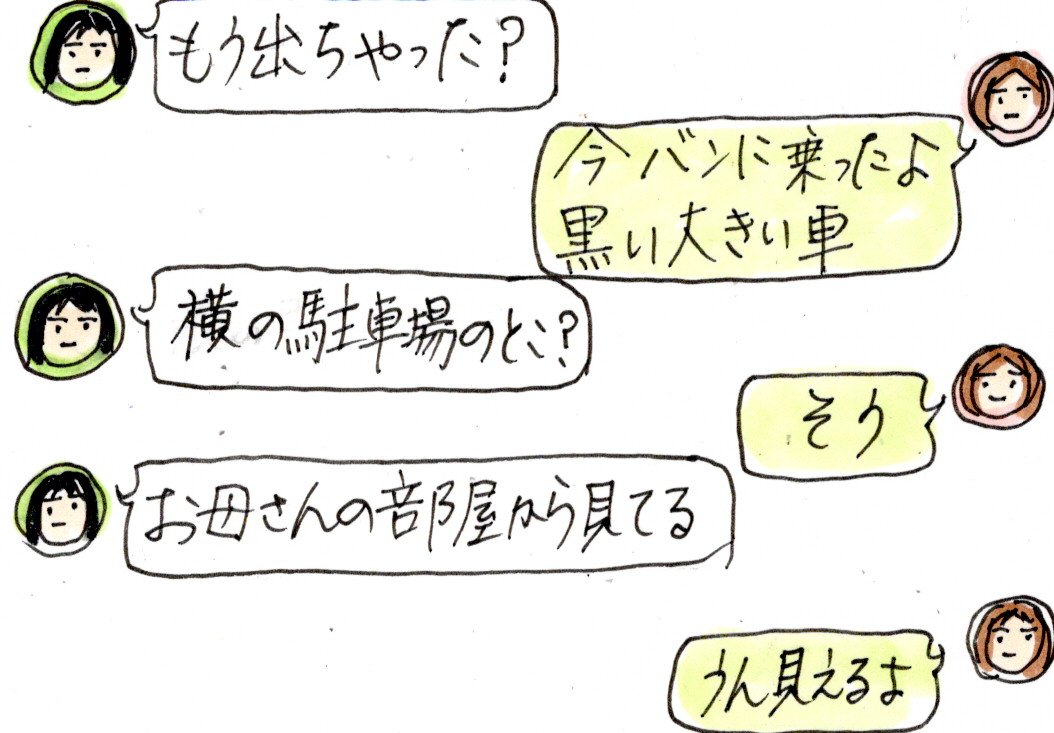 もう出ちゃった?
今バンに乗ったよ
黒い大きい車
横の駐車場のとこ?
そう
お母さんの部屋から見てる
うん見えるよ